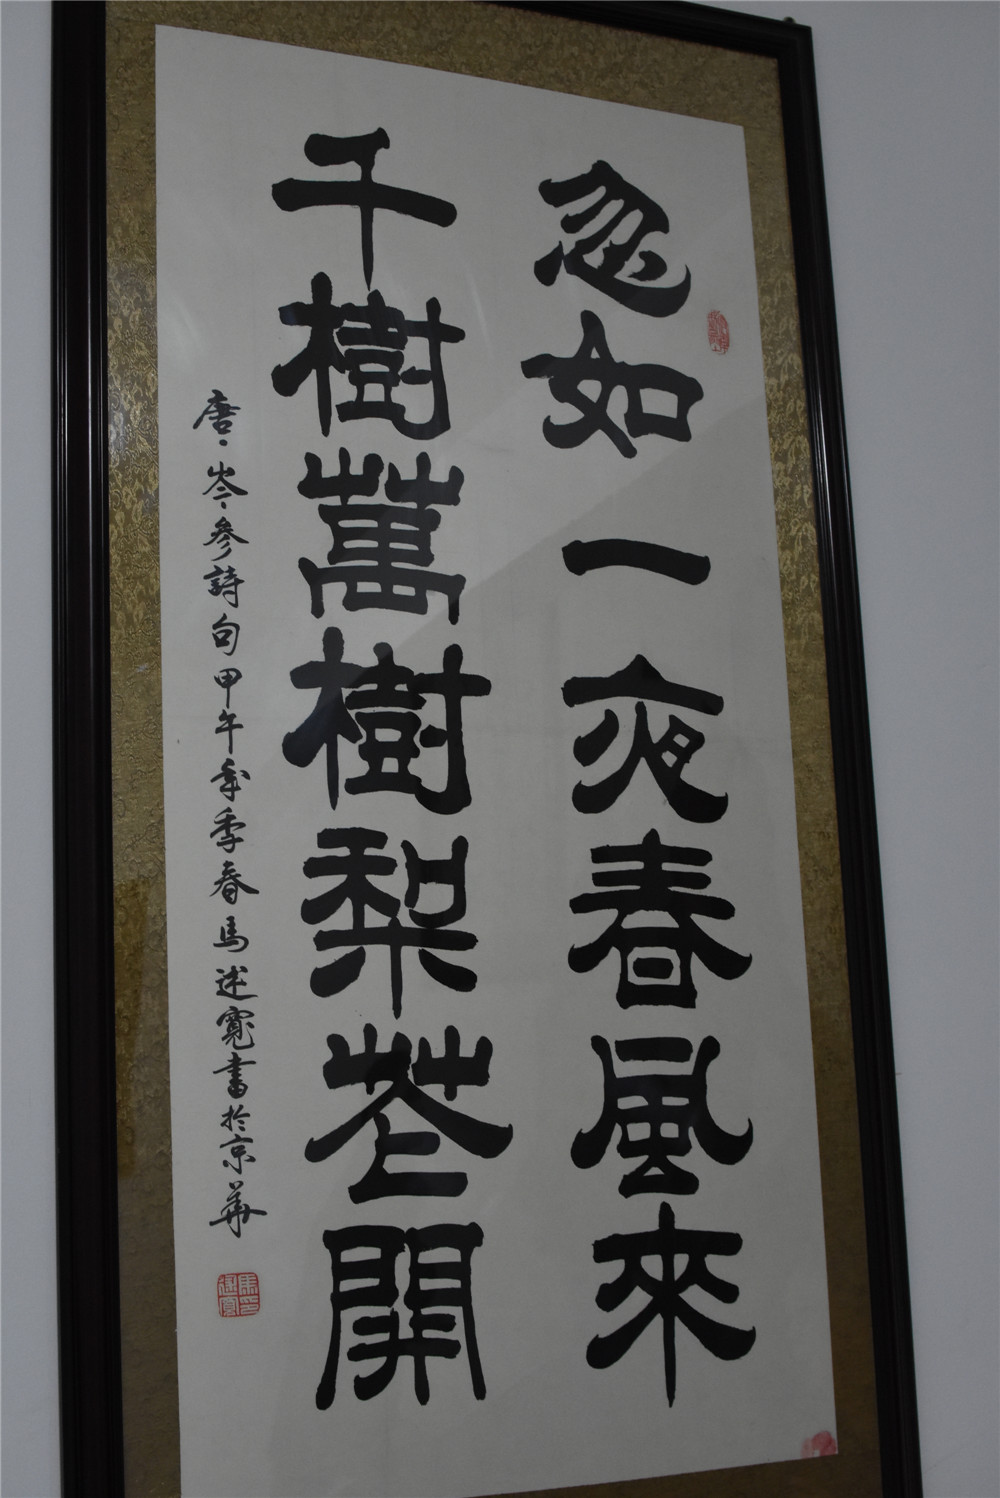 忽如一夜春風來
千樹萬樹梨花開
唐岑參詩句甲午年季春馬述寬書於京華